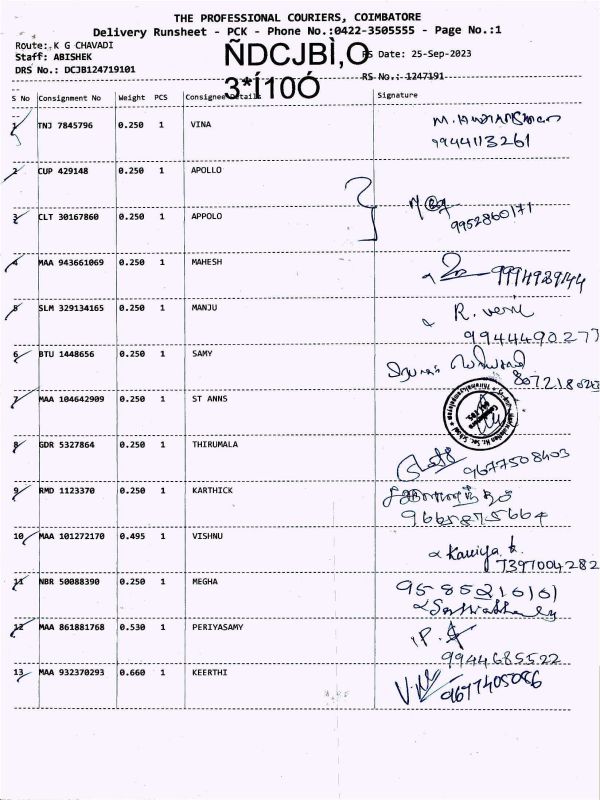 THE PROFESSIONAL COURIERS, COIMBATORE
Delivery Runsheet - PCK - Phone No.:0422-3505555 - Page No.:1
Route: K G CHAVADI
Staff: ABISHEK
DRS No.: DCJB124719101
ÑDCJBÌ,O
3*Í10Ó
RS Date: 25-Sep-2023
RS No.: 1247191
S No Consignment No Weight PCS Consignee Details Signature
1 TNJ 7845796 0.250 1 VINA
9944113261
2 CUP 429148 0.250 1 APOLLO
3 CLT 30167860 0.250 1 APPOLO
9952860171
4 MAA 943661069 0.250 1 MAHESH 9994989144
5 SLM 329134165 0.250 1 MANJU R.
9944490277
6 BTU 1448656 0.250 1 SAMY
7 MAA 104642909 0.250 1 ST ANNS
8 GDR 5327864 0.250 1 THIRUMALA
9677508403
9 RMD 1123370 0.250 1 KARTHICK
9665875664
10 MAA 101272170 0.495 1 VISHNU Kaviya k
7397004282
11 NBR 50088390 0.250 1 MEGHA 9585216161
12 MAA 861881768 0.530 1 PERIYASAMY P.
9944685522
13 MAA 932370293 0.660 1 KEERTHI 9677405086